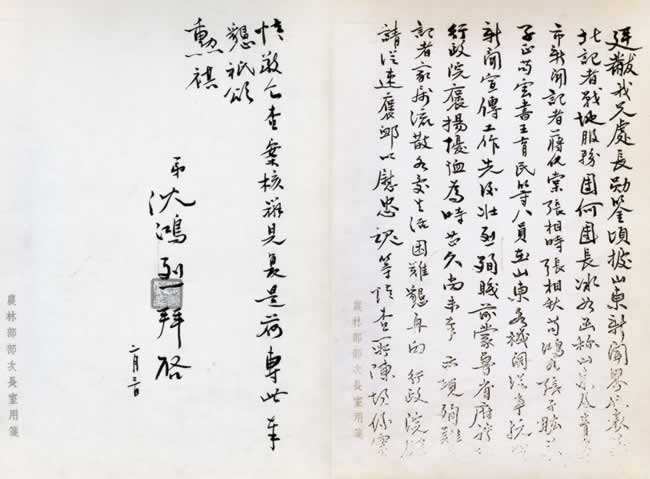 廷黻我兄處長勛鑒頃據山東新聞界代表
北記者戰地服務團何團長冰如函稱山東及青
市新聞記者蔣化棠張相時張相秋苟鴻九張子
子正苟宏書王育民等八員在山東各機關從事抗
新聞宣傳工作先後壯烈殉職前蒙魯省府
行政院褒揚撫卹為時已久尚未奉 示現殉難
記者家屬流散各處生活困難懇再向 行政院
請從速褒卹以慰忠魂等情查所陳均係實
農林部部次長室用箋
情敬乞查案核辦見復是荷專此奉
懇祗頌
勳祺
弟 沈鴻烈拜啓
二月三日
農林部部次長室用箋